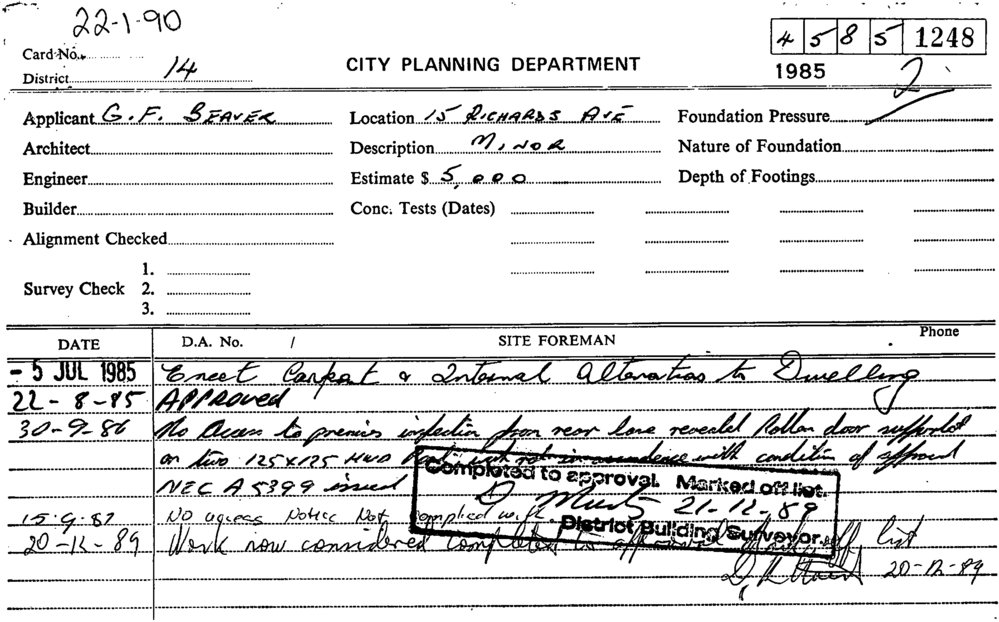 22-1-90
Card No.
4 5 8 5 1248
District 14
CITY PLANNING DEPARTMENT
1985
2
Applicant G. F. BEAVER
Location 15 RICHARDS AVE
Foundation Pressure
Architect
Description MINOR
Nature of Foundation
Engineer
Estimate $ 5,000
Depth of Footings
Builder
Conc. Tests (Dates)
Alignment Checked
Survey Check
1.
2.
3.
DATE
D.A. No. /
SITE FOREMAN
Phone
- 5 JUL 1985 Erect Carport & Internal Alterations to Dwelling
22-8-85 APPROVED
30-9-86 No Access to premises inspection from rear lane revealed Roller door supported
on two 125x125 HWD not in accordance with condition of approval
NEC A 5399 issued
Completed to approval. Marked off list.
21-12-89
District Building Surveyor.
15-9-87 NO access Notice Not complied with
20-12-89 Work now considered completed to off list
20-12-89